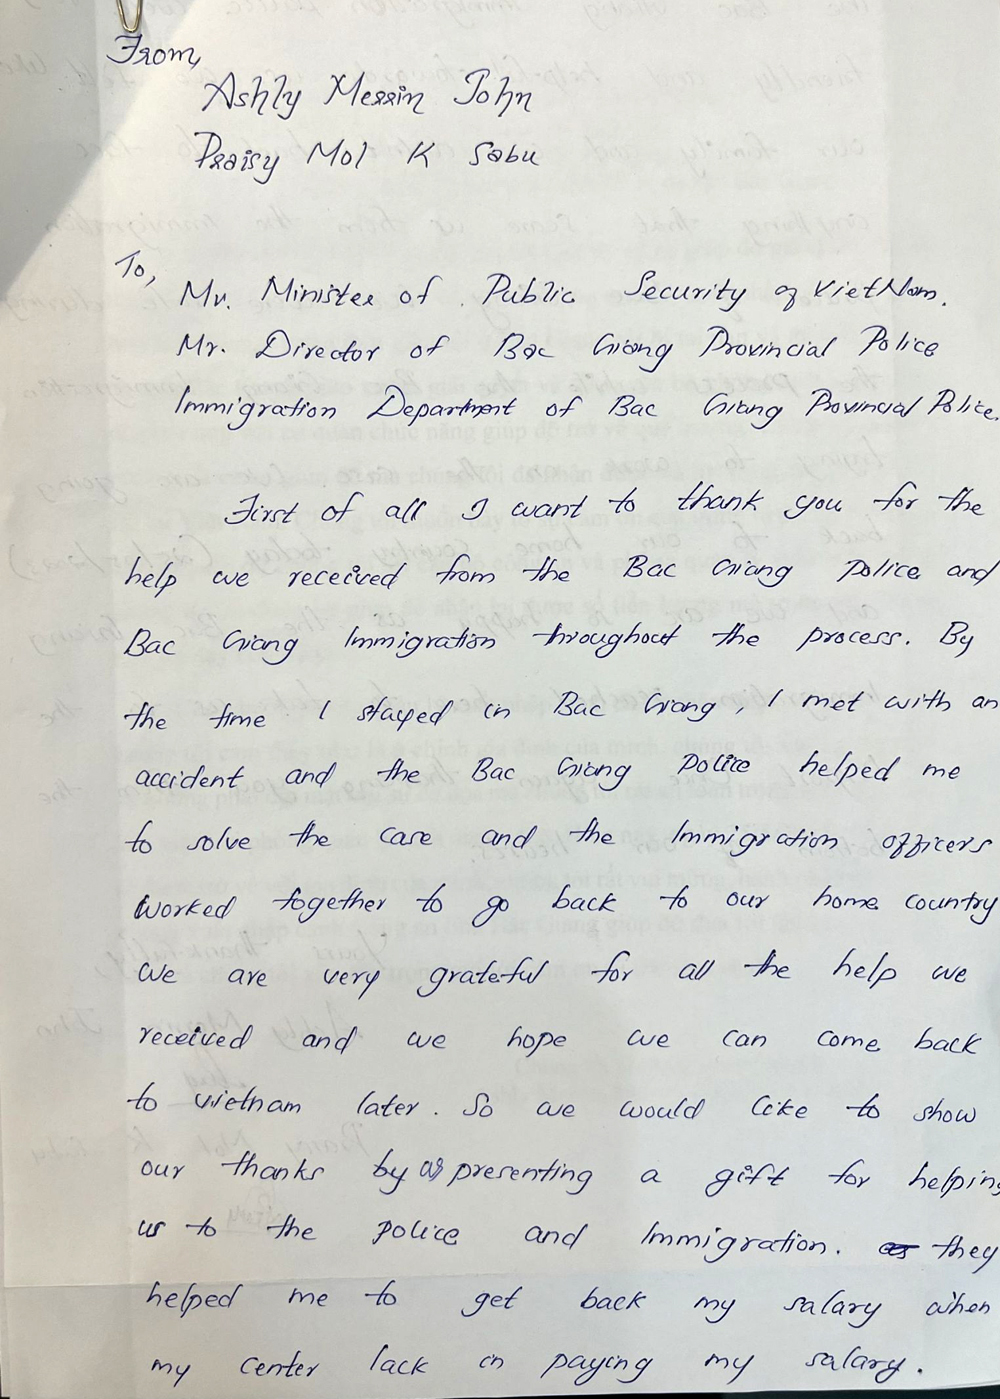 From,
Ashly Merrin John
Praisy Mol K Sabu
To,
Mr. Minister of Public Security of VietNam.
Mr. Director of Bac Giang Provincial Police
Immigration Department of Bac Giang Provincial Police.
First of all I want to thank you for the
help we received from the Bac Giang Police and
Bac Giang Immigration throughout the process. By
the time I stayed in Bac Giang, I met with an
accident and the Bac Giang Police helped me
to solve the case and the Immigration officers
worked together to go back to our home country
We are very grateful for all the help we
received and we hope we can come back
to vietnam later. So we would like to show
our thanks by presenting a gift for helping
us to the police and Immigration. they
helped me to get back my salary when
my center lack in paying my salary.